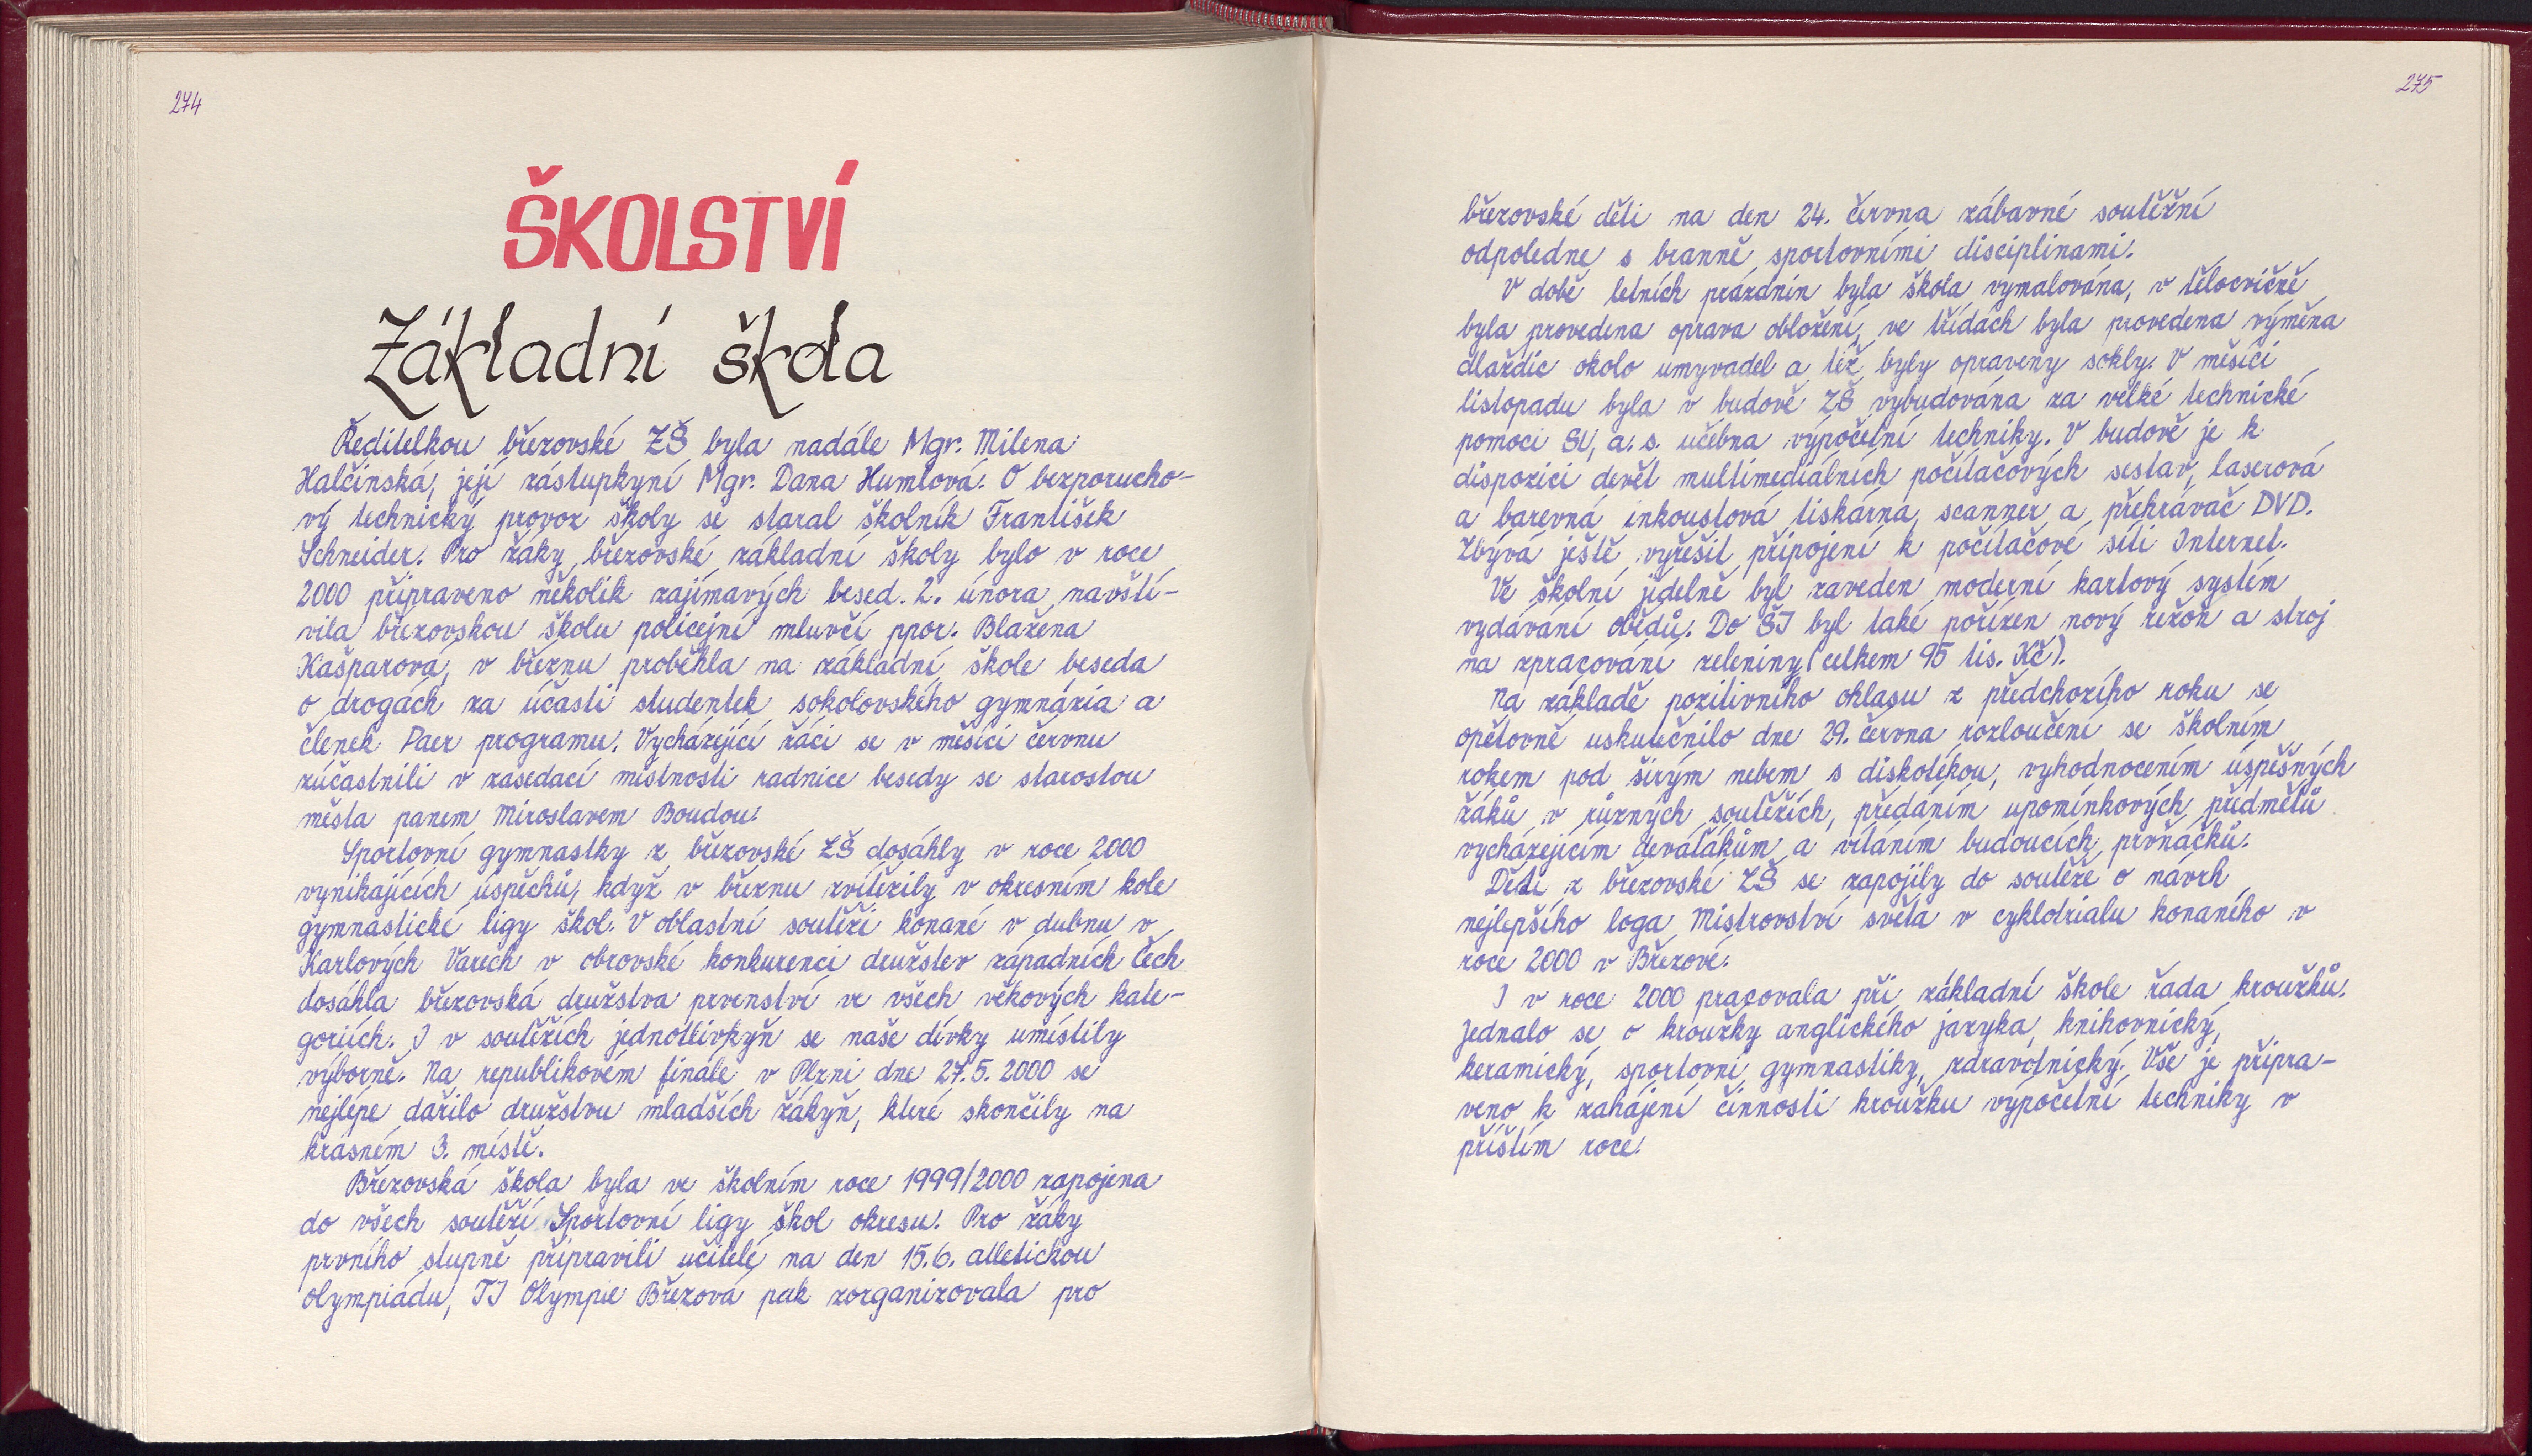 274
ŠKOLSTVÍ
Základní škola
Ředitelkou březovské ZŠ byla nadále Mgr. Milena
Halčínská, její zástupkyní Mgr. Dana Humlová. O bezporucho-
vý technický provoz školy se staral školník František
Schneider. Pro žáky březovské základní školy bylo v roce
2000 připraveno několik zajímavých besed. 2. února navští-
vila březovskou školu policejní mluvčí ppor. Blažena
Kašparová, v březnu proběhla na základní škole beseda
o drogách za účasti studentek sokolovského gymnázia a
členek Paer programu. Vycházející žáci se v měsíci červnu
zúčastnili v zasedací místnosti radnice besedy se starostou
města panem Miroslavem Boudou.
Sportovní gymnastky z březovské ZŠ dosáhly v roce 2000
vynikajících úspěchů, když v březnu zvítězily v okresním kole
gymnastické ligy škol. V oblastní soutěži konané v dubnu v
Karlových Varech v obrovské konkurenci družstev západních Čech
dosáhla březovská družstva prvenství ve všech věkových kate-
goriích. I v soutěžích jednotlivkyň se naše dívky umístily
výborně. Na republikovém finále v Plzni dne 27.5.2000 se
nejlépe dařilo družstvu mladších žákyň, které skončily na
krásném 3. místě.
Březovská škola byla ve školním roce 1999/2000 zapojena
do všech soutěží Sportovní ligy škol okresu. Pro žáky
prvního stupně připravili učitelé na den 15.6. atletickou
olympiádu, TJ Olympie Březová pak zorganizovala pro
275
březovské děti na den 24. června zábavné soutěžní
odpoledne s branně sportovními disciplinami.
V době letních prázdnin byla škola vymalována, v tělocvičně
byla provedena oprava obložení, ve třídách byla provedena výměna
dlaždic okolo umyvadel a též byly opraveny sokly. V měsíci
listopadu byla v budově ZŠ vybudována za velké technické
pomoci SU, a.s. učebna výpočetní techniky. V budově je k
dispozici devět multimediálních počítačových sestav, laserová
a barevná inkoustová tiskárna, scanner a přehrávač DVD.
Zbývá ještě vyřešit připojení k počítačové síti Internet.
Ve školní jídelně byl zaveden moderní kartový systém
vydávání obědů. Do ŠJ byl také pořízen nový režon a stroj
na zpracování zeleniny (celkem 95 tis. Kč).
Na základě pozitivního ohlasu z předchozího roku se
opětovně uskutečnilo dne 29. června rozloučení se školním
rokem pod širým nebem s diskotékou, vyhodnocením úspěšných
žáků v různých soutěžích, předáním upomínkových předmětů
vycházejícím deváťákům a vítáním budoucích prvňáčků.
Děti z březovské ZŠ se zapojily do soutěže o návrh
nejlepšího loga Mistrovství světa v cyklotrialu konaného v
roce 2000 v Březové.
I v roce 2000 pracovala při základní škole řada kroužků.
Jednalo se o kroužky anglického jazyka, knihovnický,
keramický, sportovní gymnastiky, zdravotnický. Vše je připra-
veno k zahájení činnosti kroužku výpočetní techniky v
příštím roce.